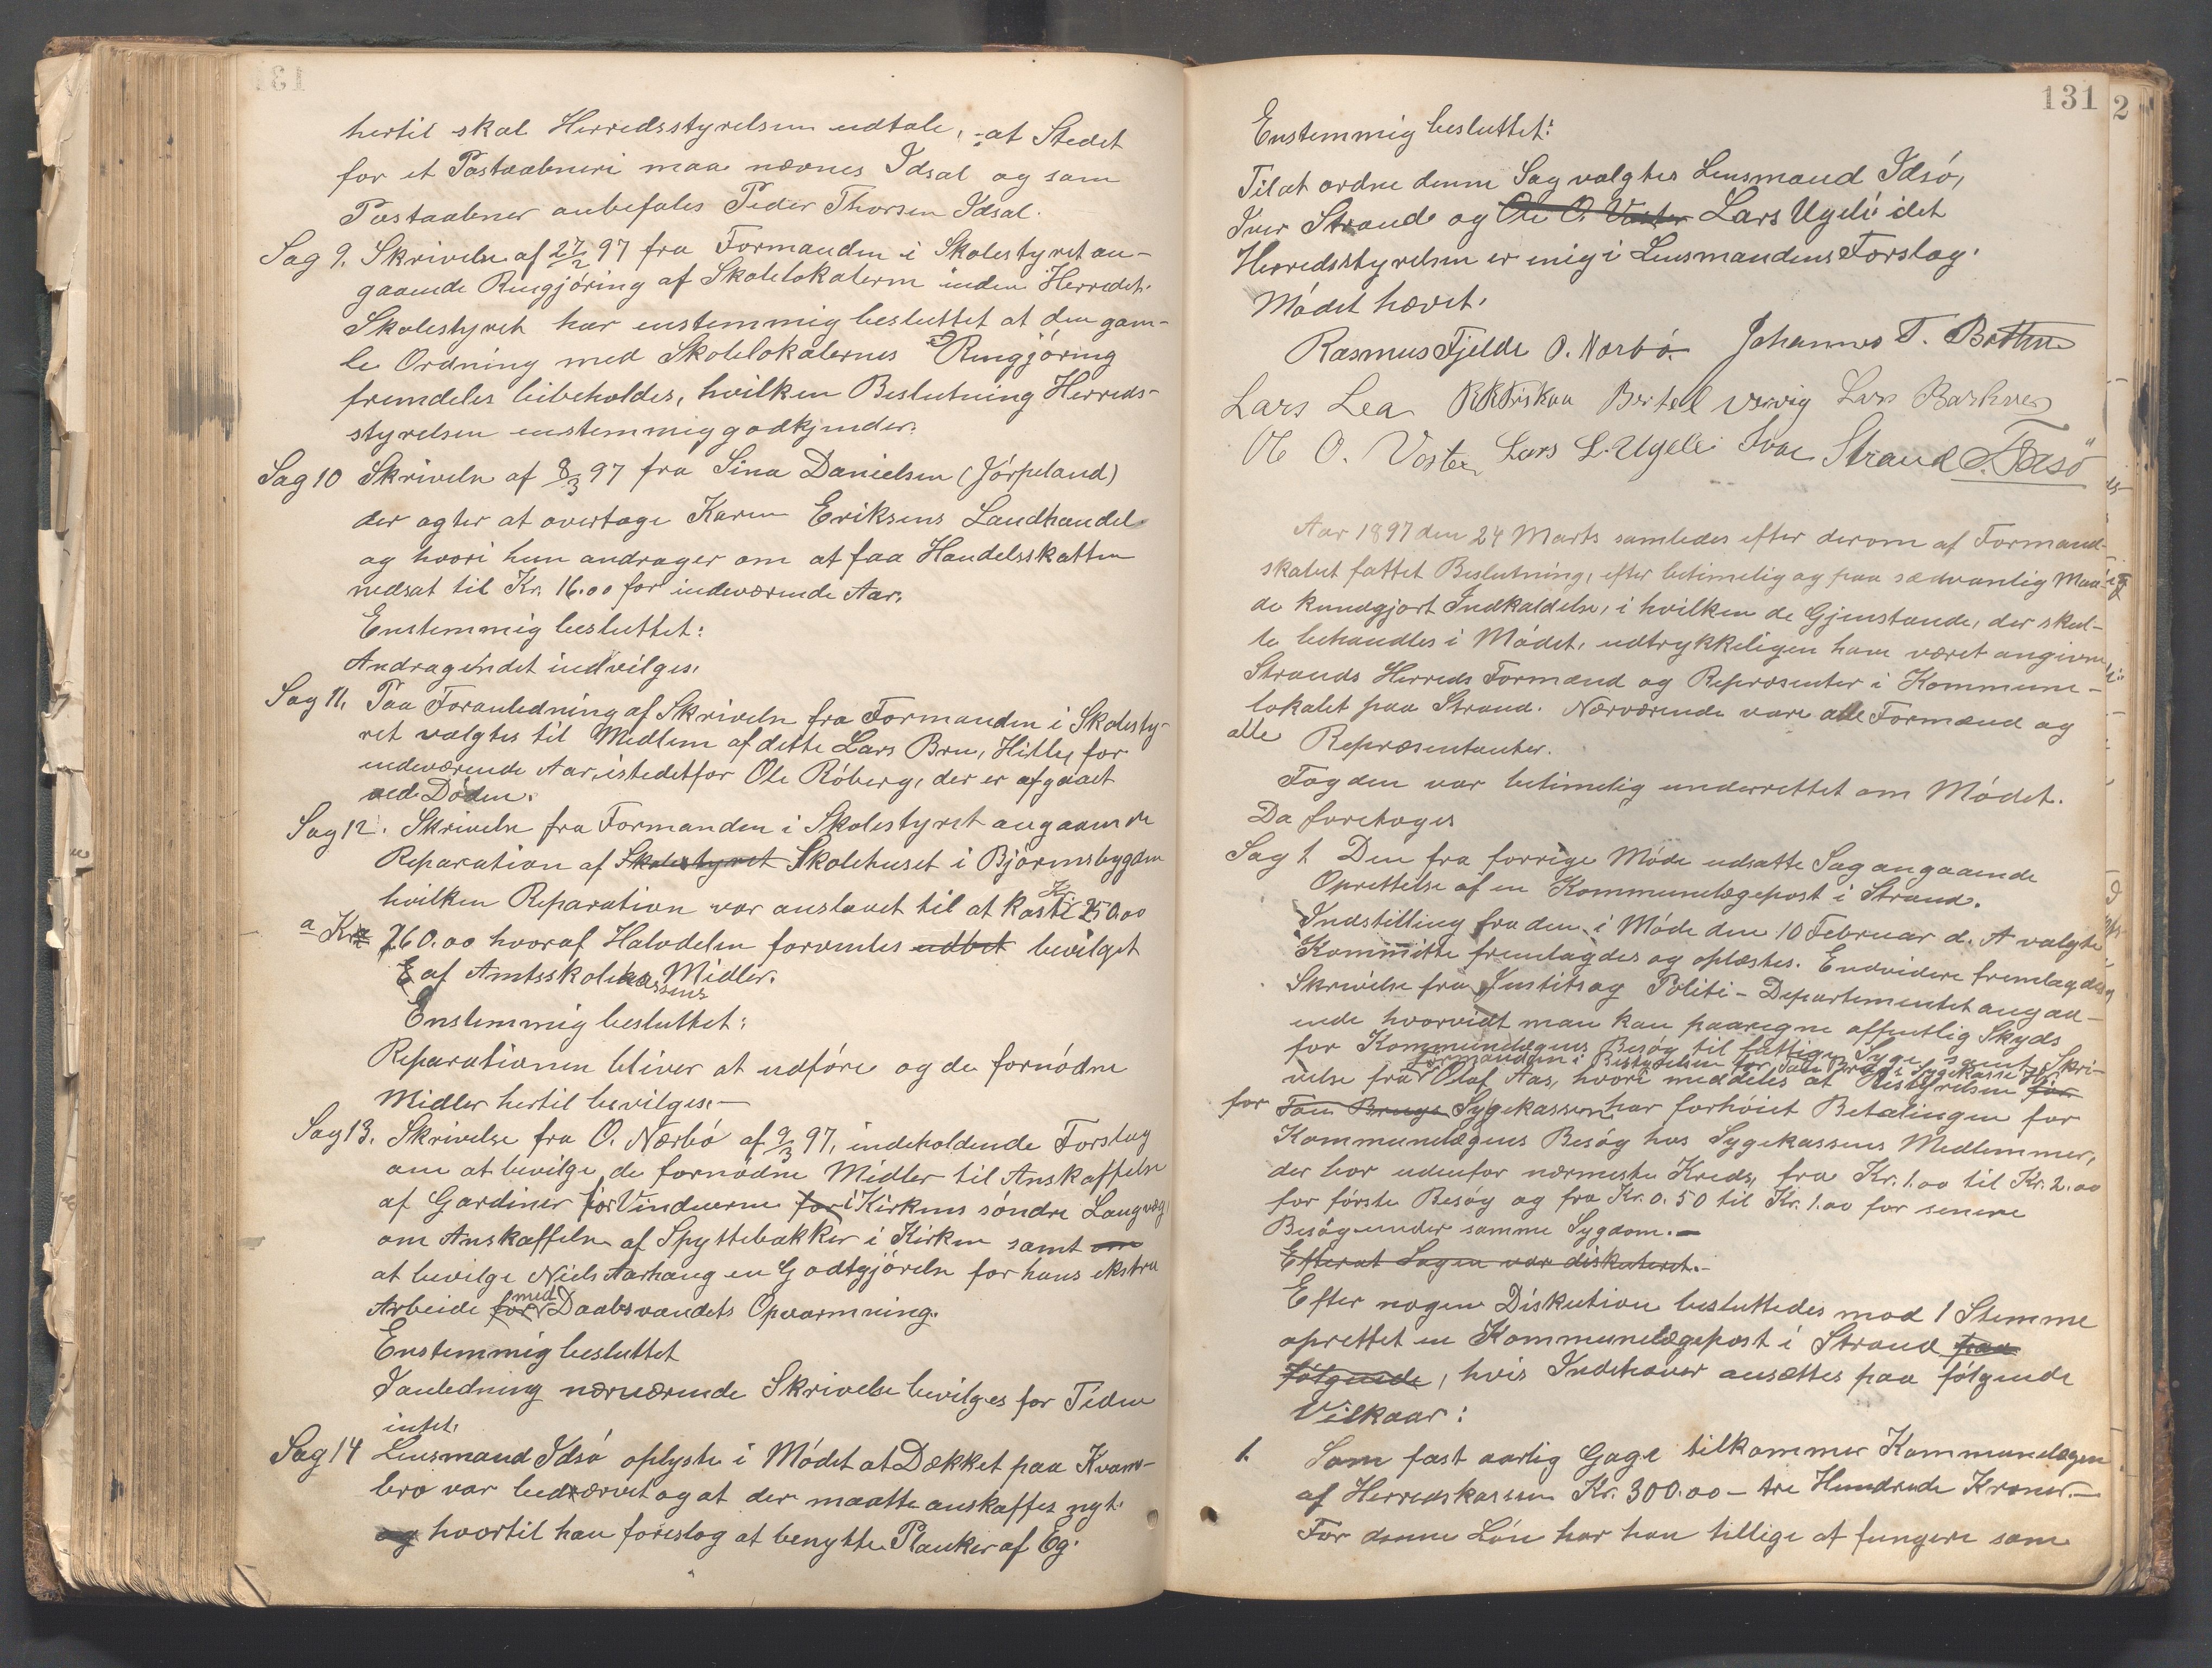 hertil skal Herredsstyrelsen udtale, at Stedet
for et Postaabneri maa nævnes Idsal og som
Postaabner anbefales Peder Thorsen Idsal.
Sag 9. Skrivelse af 27/2 97 fra Formanden i Skolestyret an-
gaaende Rengjöring af Skolelokalerne inden Herredet.
Skolestyret har enstemmig besluttet at den gam-
le Ordning med Skolelokalernes Rengjöring
fremdeles bibeholdes, hvilken Beslutning Herreds-
styrelsen enstemmig godkjender.
Sag 10 Skrivelse af 8/3 97 fra Sina Danielsen (Jörpeland)
der agter at overtage Karen Eriksens Landhandel
og hvori hun andrager om at faa Handelsskatten
nedsat til Kr. 16.00 for indeværende Aar.
Enstemmig besluttet:
Andragendet indvilges.
Sag 11. Paa Foranledning af Skrivelse fra Formanden i Skolesty-
ret valgtes til Medlem af dette Lars Bru, Hitle, for
indeværende Aar, istedetfor Ole Röberg, der er afgaaet
ved Döden.
Sag 12. Skrivelse fra Formanden i Skolestyret angaaende
Reparation af Skolestyret Skolehuset i Björensbygden
hvilken Reparation var anslaaet til at koste Kr. 250.00
a Kr 260.00 hvoraf Halvdelen forventes udbet bevilget
af Amtsskolekassens Midler.
Enstemmig besluttet:
Reparationen bliver at udföre og de fornödne
Midler hertil bevilges.—
Sag 13. Skrivelse fra O. Nærbö af 9/3 97, indeholdende Forslag
om at bevilge de fornödne Midler til Anskaffelse
af Gardiner for Vinduerne for i Kirkens söndre Langvæg
om Anskaffelse af Spyttebakker i Kirken samt om
at bevilge Niels Aarhaug en Godtgjörelse for hans ekstra
Arbeide for med Daabsvandets Opvarmning.
Enstemmig besluttet
I anledning nærværende Skrivelse bevilges for Tiden
intet.
Sag 14 Lensmand Idsö oplyste i Mödet at Dækket paa Kvam-
bro var bedærvet og at der maatte anskaffes nyt.
og hvortil han foreslog at benytte Planker af Eg.
131
Enstemmig besluttet:
Til at ordne denne Sag valgtes Lensmand Idsö,
Iver Strand og Ole O. Voster Lars Ugeli idet
Herredsstyrelsen er enig i Lensmandens Forslag.
Mödet hævet.
Rasmus Fjelde O. Nærbö. Johannes T. Bøthun
Lars Lea Bertel Vervig Lars Barkved
Ole O. Voster Lars L. Ugeli Ivar Strand
Aar 1897 den 24 Marts samledes efter derom af Formand-
skabet fattet Beslutning, efter betimelig og paa sædvanlig Maa-
de kundgjort Indkaldelse, i hvilken de Gjenstande, der skul-
le behandles i Mödet, udtrykkeligen have været angivne
Strands Herreds Formænd og Repræsenter i Kommune-
lokalet paa Strand. Nærværende vare alle Formænd og
alle Repræsentanter.
Fogden var betimelig underrettet om Mödet.
Da foretoges
Sag 1. Den fra forrige Möde udsatte Sag angaaende
Oprettelse af en Kommunelægepost i Strand.
Indstilling fra den i Möde den 10 Februar d. A valgte
Kommitte fremlagdes og oplæstes. Endvidere fremlagdes
Skrivelse fra Justits og Politi-Departementet angaa-
ende hvorvidt man kan paaregne offentlig Skyds
for Kommunelægens Besög til fattige Syge samt Skri-
formanden i Bestyrelsen for Tau Brugs Sygekasse Hr.
velse fra Olaf Aas, hvori meddeles at Bestyrelsen for
for Tau Brugs Sygekassen har forhöiet Betalingen for
Kommunelægens Besög hos Sygekassens Medlemmer,
der bor udenfor nærmeste Kreds, fra Kr. 1.00 til Kr. 2.00
for förste Besög og fra Kr. 0.50 til Kr. 1.00 for senere
Besög under samme Sygdom.—
Efterat Sagen var diskuteret.—
Efter nogen Diskution besluttedes mod 1 Stemme
oprettet en Kommunelægepost i Strand paa
fölgende, hvis Indehaver ansættes paa fölgende
Vilkaar:
1. Som fast aarlig Gage tilkommer Kommunelægen
af Herredskassen Kr. 300.00 — tre Hundrede Kroner.—
For denne Lön har han tillige at fungere som
2